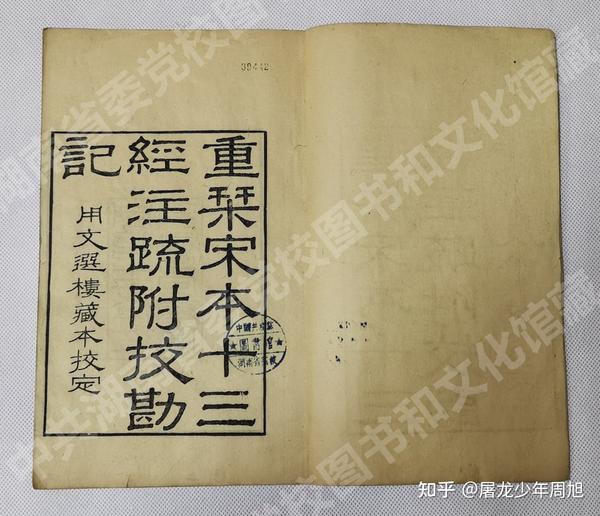 39442
重栞宋本十三
經注疏附挍勘
記
用文選樓藏本挍定
中共湖南省委党校图书和文化馆藏
知乎 @屠龙少年周旭